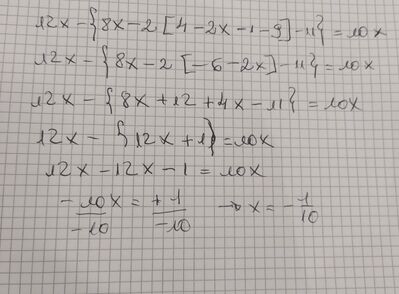 12x - {8x - 2 [4 - 2x - 1 - 9] - 11} = 10x
12x - {8x - 2 [-6 - 2x] - 11} = 10x
12x - {8x + 12 + 4x - 11} = 10x
12x - {12x + 1} = 10x
12x - 12x - 1 = 10x
-10x/-10 = +1/-10 → x = -1/10